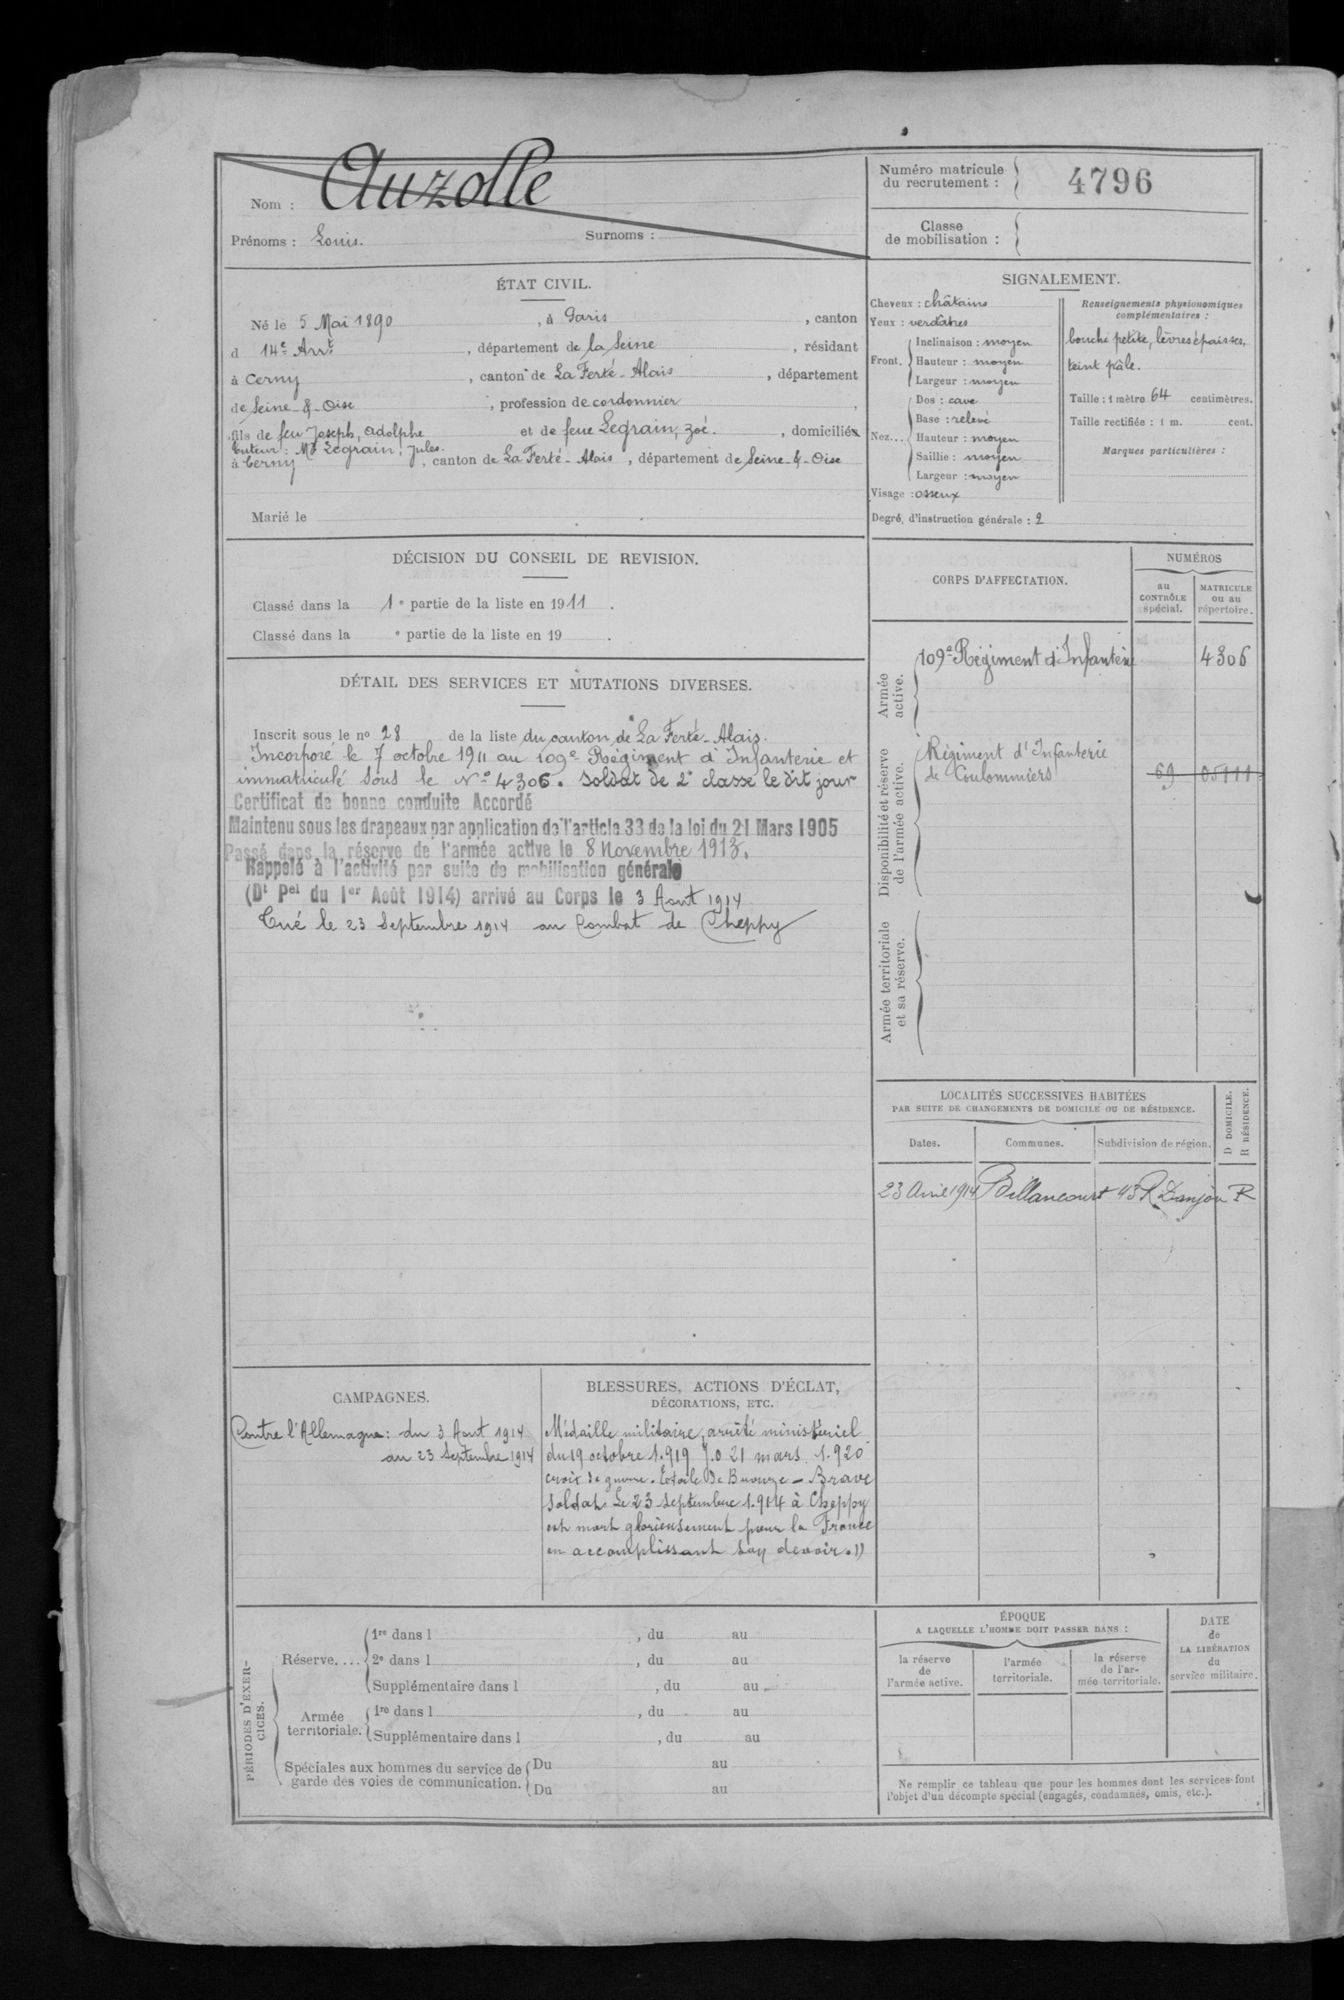 Nom : Auzolle
Prénoms : Louis. Surnoms :
Numéro matricule
du recrutement : 4796
Classe
de mobilisation :
ÉTAT CIVIL.
Né le 5 Mai 1890, à Paris, canton
d 14e Arrt, département de la Seine, résidant
à Cerny, canton de La Ferté-Alais, département
de Seine-&-Oise, profession de cordonnier,
fils de feu Joseph, Adolphe et de feue Legrain, Zoé., domiciliés
Tuteur : Mr Legrain, Jules.
à Cerny, canton de La Ferté-Alais, département de Seine-&-Oise
Marié le
SIGNALEMENT.
Cheveux : châtains
Yeux : verdâtres
Front. Inclinaison : moyen
Hauteur : moyen
Largeur : moyen
Nez... Dos : cave
Base : relevé
Hauteur : moyen
Saillie : moyen
Largeur : moyen
Visage : osseux
Renseignements physionomiques
complémentaires :
bouche petite, lèvres épaisses,
teint pâle.
Taille : 1 mètre 64 centimètres.
Taille rectifiée : 1 m. cent.
Marques particulières :
Degré d'instruction générale : 2
DÉCISION DU CONSEIL DE REVISION.
Classé dans la 1e partie de la liste en 1911.
Classé dans la e partie de la liste en 19 .
DÉTAIL DES SERVICES ET MUTATIONS DIVERSES.
Inscrit sous le no 28 de la liste du canton de La Ferté-Alais.
Incorporé le 7 octobre 1911 au 109e Régiment d'Infanterie et
immatriculé sous le No 4306. Soldat de 2e classe le dit jour
Certificat de bonne conduite Accordé
Maintenu sous les drapeaux par application de l'article 33 de la loi du 21 Mars 1905
Passé dans la réserve de l'armée active le 8 Novembre 1913.
Rappelé à l'activité par suite de mobilisation générale
(Dt Pel du 1er Août 1914) arrivé au Corps le 3 Aout 1914
Tué le 23 Septembre 1914 au Combat de Cheppy
CORPS D'AFFECTATION.
NUMÉROS
au
CONTRÔLE
spécial.
MATRICULE
ou au
répertoire.
Armée
active.
109e Régiment d'Infanterie 4306
Disponibilité et réserve
de l'armée active.
Régiment d'Infanterie
de Coulommiers 69 05111
Armée territoriale
et sa réserve.
LOCALITÉS SUCCESSIVES HABITÉES
PAR SUITE DE CHANGEMENTS DE DOMICILE OU DE RÉSIDENCE.
Dates. Communes. Subdivision de région.
D DOMICILE.
R RÉSIDENCE.
23 Avril 1914 Billancourt 43 R Danjou R
CAMPAGNES.
Contre l'Allemagne : du 3 Aout 1914
au 23 Septembre 1914
BLESSURES, ACTIONS D'ÉCLAT,
DÉCORATIONS, ETC.
Médaille militaire, arrêté ministériel
du 19 octobre 1.919 J.O 21 mars 1.920
croix de guerre. Etoile de Bronze - Brave
soldat. Le 23 septembre 1.914 à Cheppy
est mort glorieusement pour la France
en accomplissant son devoir. »
PÉRIODES D'EXERCICES.
Réserve.... 1re dans l , du au
2e dans l , du au
Supplémentaire dans l , du au
Armée
territoriale. 1re dans l , du au
Supplémentaire dans l , du au
Spéciales aux hommes du service de
garde des voies de communication.
Du au
Du au
ÉPOQUE
A LAQUELLE L'HOMME DOIT PASSER DANS :
la réserve
de
l'armée active.
l'armée
territoriale.
la réserve
de l'ar-
mée territoriale.
DATE
de
LA LIBÉRATION
du
service militaire.
Ne remplir ce tableau que pour les hommes dont les services font
l'objet d'un décompte spécial (engagés, condamnés, omis, etc.).